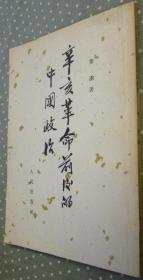 辛亥革命前后的
中国政治
黎澍著
人民出版社